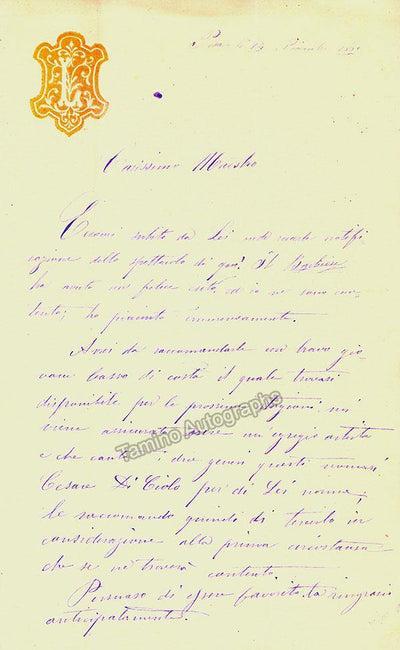 L
Carissimo Maestro
Eccomi subito da Lei onde darle notifi
cazione dello spettacolo di qua. Il Barbiere
ha avuto un felice esito, ed io ne sono con
tento; ho piaciuto immensamente.
Avrei da raccomandarle un bravo gio
vane basso di costà il quale trovasi
disponibile per la prossima stagione, mi
viene assicurato essere un'egregio artista
e che canta i due generi questi nomasi
Cesare Di Ciolo per di Lei norma;
le raccomando quindi di tenerlo in
considerazione alla prima circostanza
che se ne troverà contento.
Persuaso di essere favorito la ringrazio
anticipatamente.
Tamino Autographs